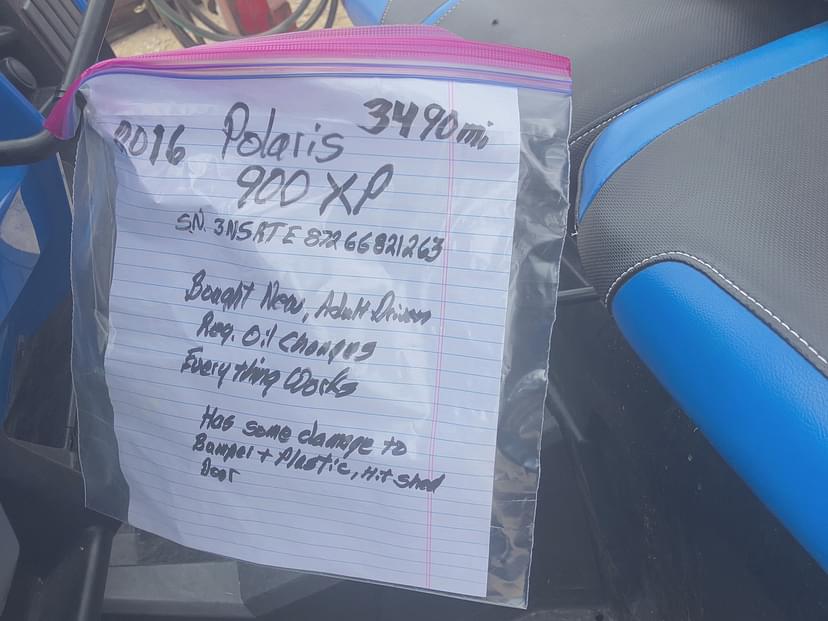 2016 Polaris 3490mi
900 XP
SN. 3NSRTE87266821263
Bought New, Adult Driven
Reg. Oil Changes
Everything Works
Has some damage to
Bumper + Plastic, Hit shed
Door